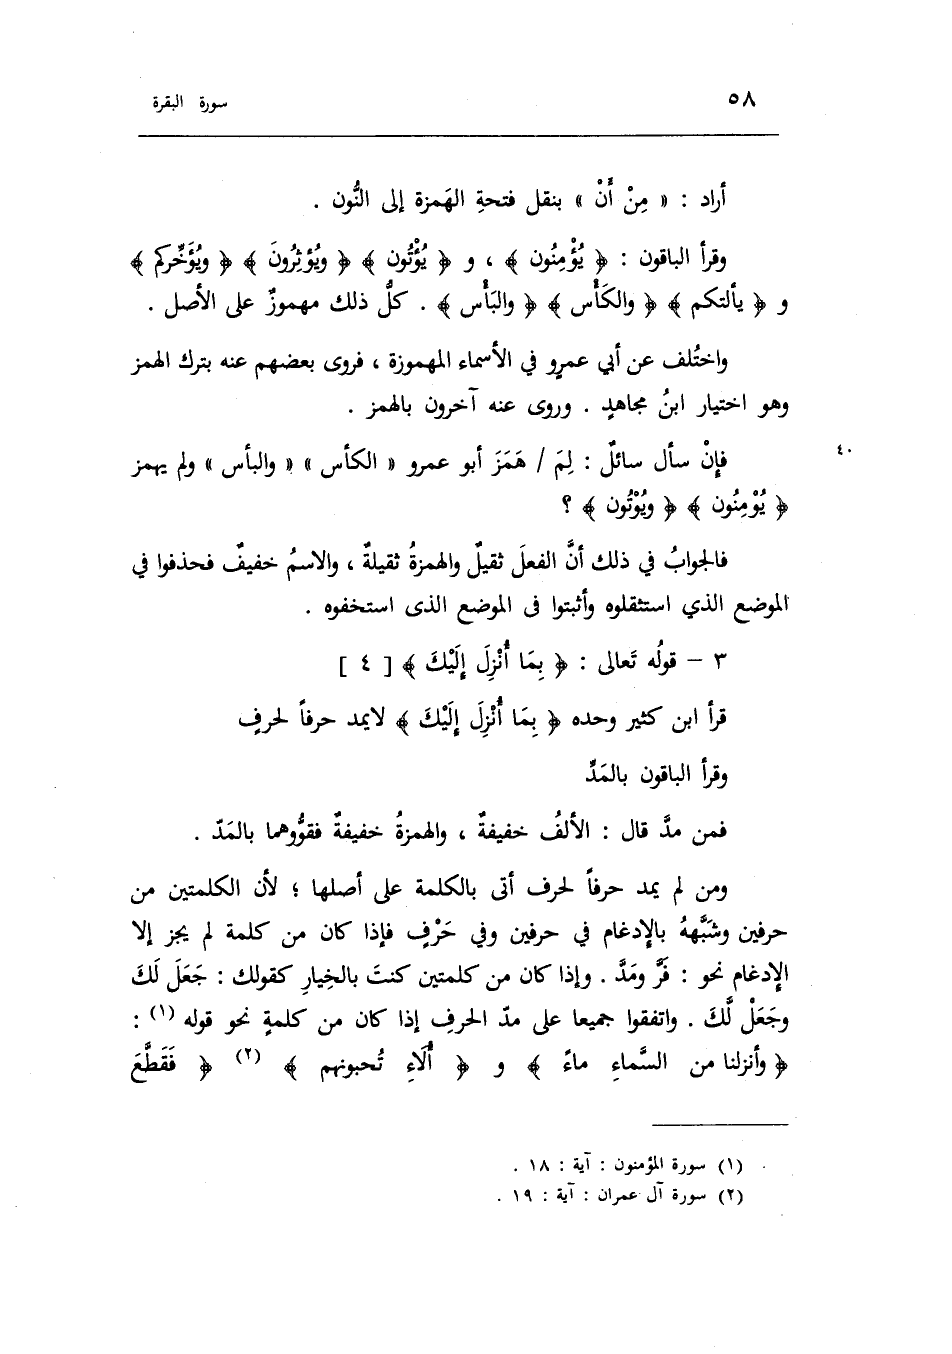 ٥٨ سورة البقرة
أراد : « مِنْ أَنْ » بنقل فتحةِ الهَمزة إلى النُّون .
وقرأ الباقون : ﴿ يُؤْمِنُون ﴾ ، و ﴿ يُؤْتُون ﴾ ﴿ ويُؤثِرُونَ ﴾ ﴿ ويُؤَخِّركم ﴾
و ﴿ يألتكم ﴾ ﴿ والكَأْس ﴾ ﴿ والبَأْس ﴾ . كلُّ ذلك مهموزٌ على الأصل .
واختُلف عن أبي عمرٍو في الأسماء المهموزة ، فروى بعضهم عنه بترك الهمز
وهو اختيار ابنُ مجاهدٍ . وروى عنه آخرون بالهمز .
٤٠
فإِنْ سأل سائلٌ : لِمَ / هَمَزَ أبو عمرو « الكأس » « والبأس » ولم يهمز
﴿ يُوْمِنُون ﴾ ﴿ ويُوْتُون ﴾ ؟
فالجوابُ في ذلك أنَّ الفعلَ ثقيلٌ والهمزةُ ثقيلةٌ ، والاسمُ خفيفٌ فحذفوا في
الموضع الذي استثقلوه وأثبتوا فى الموضع الذى استخفوه .
٣ – قولُه تَعالى : ﴿ بِمَا أُنْزِلَ إِلَيْكَ ﴾ [ ٤ ]
قرأ ابن كثير وحده ﴿ بِمَا أُنْزِلَ إِلَيْكَ ﴾ لايمد حرفاً لحرفٍ
وقرأ الباقون بالمَدِّ
فمن مدَّ قال : الألفُ خفيفةٌ ، والهمزةُ خفيفةٌ فقوُّوهما بالمَدّ .
ومن لم يمد حرفاً لحرف أتى بالكلمة على أصلها ؛ لأن الكلمتين من
حرفين وشَبَّههُ بالإدغام في حرفين وفي حَرْفٍ فإذا كان من كلمة لم يجز إلا
الإدغام نحو : فَرَّ ومَدَّ . وإذا كان من كلمتين كنتَ بالخِيارِ كقولك : جَعَلَ لَكَ
وجَعَلْ لَّكَ . واتفقوا جميعا على مدّ الحرفِ إذا كان من كلمةٍ نحو قوله (١) :
﴿ وأنزلنا من السَّماءِ ماءً ﴾ و ﴿ أُلَاءِ تُحبونهم ﴾ (٢) ﴿ فَقَطَّعَ
(١) سورة المؤمنون : آية : ١٨ .
(٢) سورة آل عمران : آية : ١٩ .